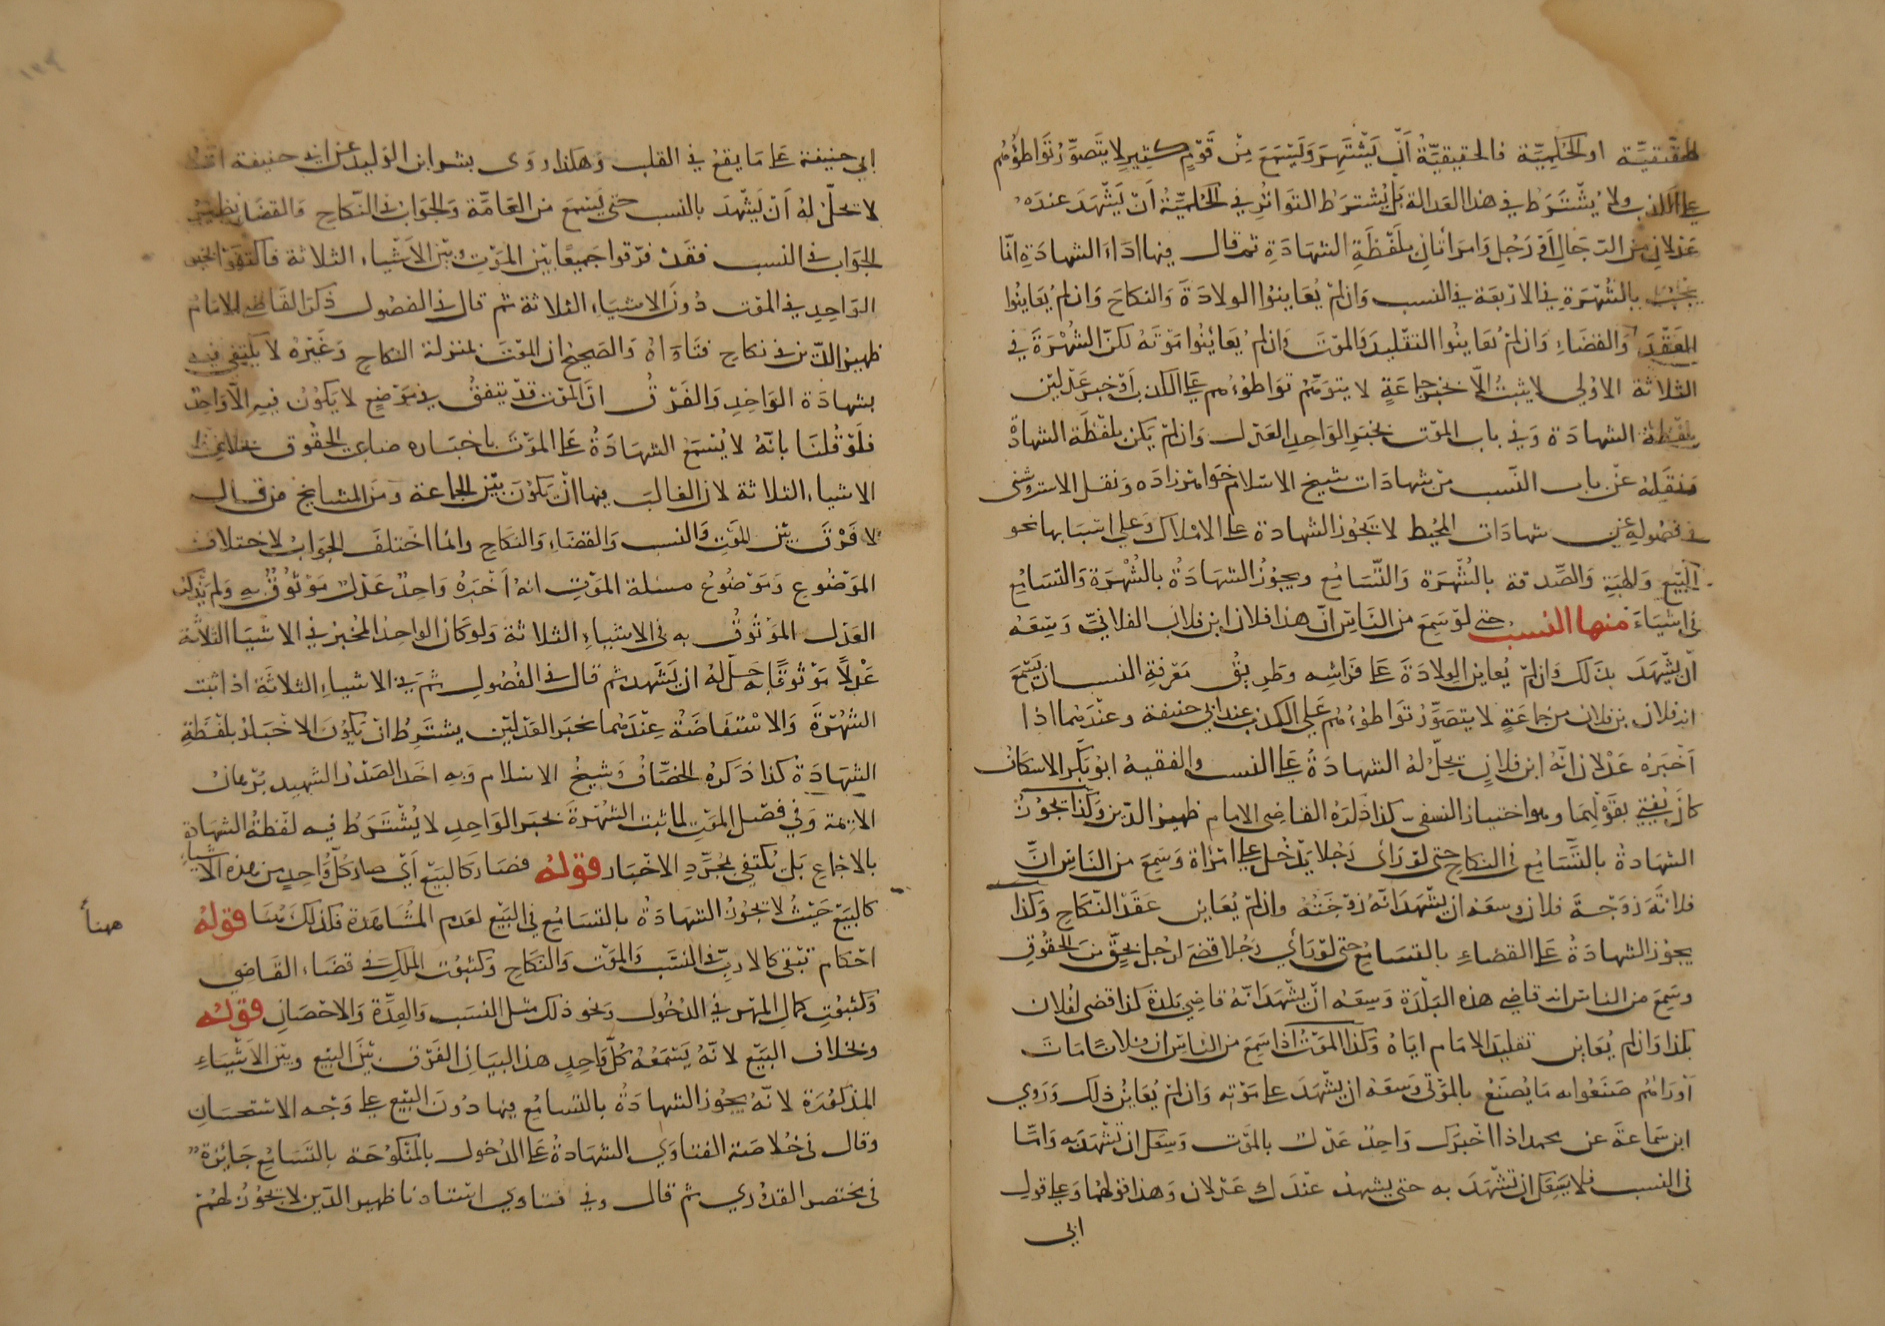 الحقيقية او الحكمية فالحقيقية أن يشتهر ويسمع من قوم كثير لا يتصور تواطؤهم
على الكذب ولا يشترط في هذا العدالة بل يشترط التواتر وفي الحكمية أن يشهد عنده
عدلان من الرجال أو رجل وامرأتان بلفظة الشهادة ثم قال فيها اداء الشهادة انما
بالشهرة في الاربعة في النسب وان لم يعاينوا الولادة والنكاح وان لم يعاينوا
العقد والقضاء وان لم يعاينوا التقليد والموت وان لم يعاينوا موته لكن الشهرة في
الثلاثة الاولى لا يثبت الا بخبر جماعة لا يتوهم تواطؤهم على الكذب أو خبر عدلين
بلفظة الشهادة وفي باب الموت بخبر الواحد العدل وان لم يكن بلفظة الشهادة
ونقله عن باب النسب من شهادات شيخ الاسلام خواهرزاده ونقل الاستروشنى
في فصوله عن شهادات المحيط لا يجوز الشهادة على الاملاك وعلى اسبابها نحو
البيع والهبة والصدقة بالشهرة والتسامع ويجوز الشهادة بالشهرة والتسامع
في اشياء منها النسب حتى لو سمع من الناس ان هذا فلان ابن فلان الفلاني وسعه
أن يشهد بذلك وان لم يعاين الولادة على فراشه وطريق معرفة النسب ان يسمع
انه فلان بن فلان من جماعة لا يتصور تواطؤهم على الكذب عند ابي حنيفة وعندهما اذا
أخبره عدلان انه ابن فلان يحل له الشهادة على النسب والفقيه ابو بكر الاسكاف
كان يفتي بقولهما وهو اختيار النسفى كذا ذكره القاضى الامام ظهير الدين وكذا تجوز
الشهادة بالتسامع في النكاح حتى لو رأى رجلا يدخل على امرأة وسمع من الناس ان
فلانة زوجة فلان وسعه ان يشهد انه زوجته وان لم يعاين عقد النكاح وكذا
يجوز الشهادة على القضاء بالتسامع حتى لو رأى رجلا قضى لرجل بحق من الحقوق
وسمع من الناس انه قاضى هذه البلدة وسعه ان يشهد انه قاضي بلدة كذا قضى لفلان
بكذا وان لم يعاين تقليد الامام اياه وكذا الموت اذا سمع من الناس ان فلانا مات
أو رآهم صنعوا به ما يصنع بالموتى وسعه ان يشهد على موته وان لم يعاين ذلك وروي
ابن سماعة عن محمد اذا اخبرك واحد عدل بالموت وسعك ان تشهد به واما
في النسب فلا يسعك ان تشهد به حتى يشهد عندك عدلان وهذا قولهما وعلى قول
ابي
ابي حنيفة على ما يقع في القلب وهكذا روى بشر ابن الوليد عن ابي حنيفة انه
لا تحل له أن يشهد بالنسب حتى يسمع من العامة والجواب في النكاح والقضاء نظير
الجواب في النسب فقد فرقوا جميعا بين الموت وبين الاشياء الثلاثة فاكتفوا بخبر
الواحد في الموت دون الاشياء الثلاثة ثم قال في الفصول ذكر القاضى الامام
ظهير الدين في نكاح فتاواه والصحيح ان الموت بمنزلة النكاح وغيره لا يكتفى فيه
بشهادة الواحد والفرق ان الموت قد يتفق في موضع لا يكون فيه الا واحد
فلو قلنا بانه لا يسمع الشهادة على الموت باخباره ضاعت الحقوق بخلاف
الاشياء الثلاثة لان الغالب فيها ان يكون بين الجماعة ومن المشايخ من قال
لا فرق بين الموت والنسب والقضاء والنكاح وانما اختلف الجواب لاختلاف
الموضوع وموضوع مسئلة الموت انه أخبره واحد عدل موثوق به ولم يذكر
العدل الموثوق به في الاشياء الثلاثة ولو كان الواحد المخبر في الاشياء الثلاثة
عدلا موثوقا به حل له ان يشهد ثم قال في الفصول ثم في الاشياء الثلاثة اذا ثبت
الشهرة والاستفاضة عندهما بخبر العدلين يشترط ان يكون الاخبار بلفظة
الشهادة كذا ذكره الخصاف وشيخ الاسلام وبه اخذ الصدر الشهيد برهان
الايمة وفي فصل الموت لما ثبت الشهرة بخبر الواحد لا يشترط فيه لفظة الشهادة
بالاجماع بل يكتفى بمجرد الاخبار قوله فصار كالبيع أي صار كل واحد من هذه الاشياء
كالبيع حيث لا تجوز الشهادة بالتسامع في البيع لعدم المشاهدة فكذلك هنا قوله
هنا
احكام تبقى كالارث في النسب والموت والنكاح وكثبوت الملك في قضاء القاضي
وكثبوت كمال المهر في الدخول ونحو ذلك مثل النسب والعدة والاحصان قوله
وبخلاف البيع لانه يسمعه كل واحد هذا البيان الفرق بين البيع وبين الاشياء
المذكورة لانه يجوز الشهادة بالتسامع فيها دون البيع على وجه الاستحسان
وقال في خلاصة الفتاوي الشهادة على الدخول بالمنكوحة بالتسامع جائزة
في مختصر القدوري ثم قال وفي فتاوي استادنا ظهير الدين لا تجوز لهم